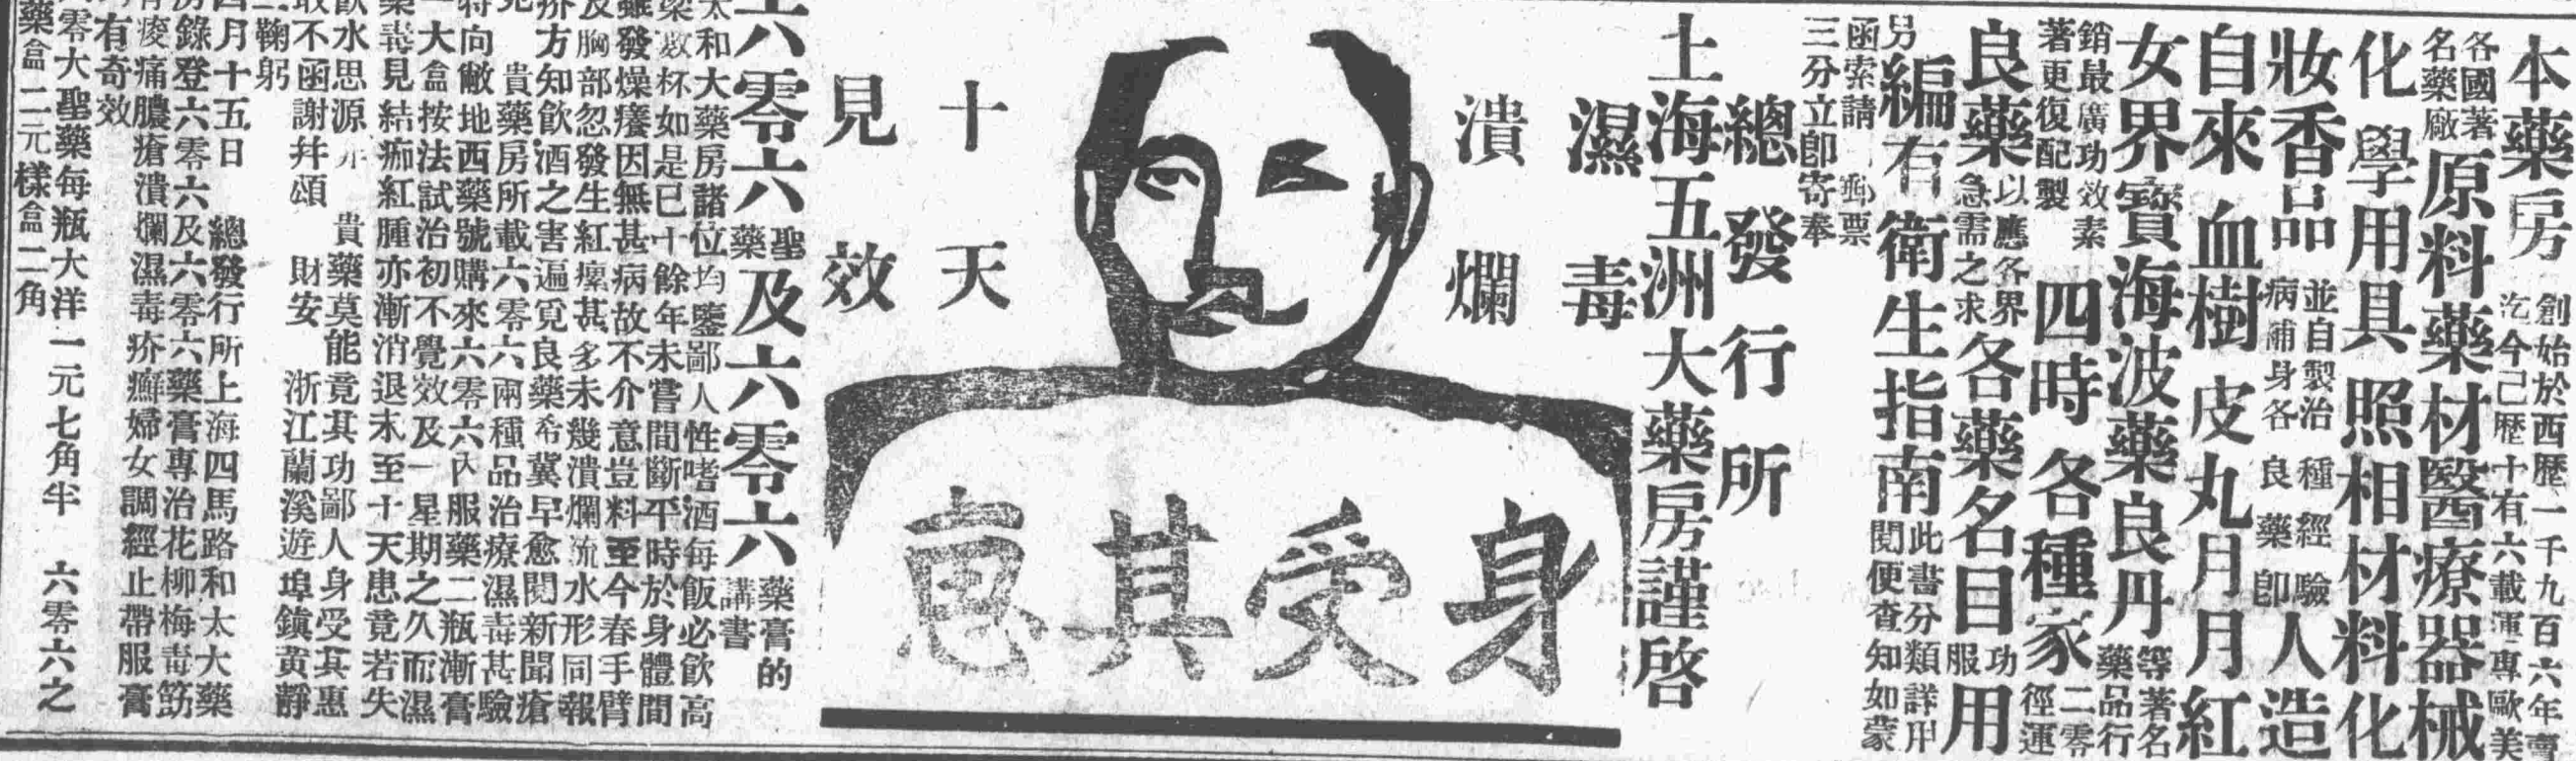 本藥房創始於西歷一千九百六年賣
汔今己歷十有六載運專歐美
各國著
名藥廠原料藥材醫療器械
化學用具照相材料化
妝香品並自製治種經驗人造
病補身各良藥卽
自來血樹皮丸月月紅
女界寶海波藥良丹等著名
藥品行
銷最廣功效素
著更復配製四時各種家二零
徑運
良藥以應各界
急需之求各藥名目功
服用
另編有衛生指南此書分類詳
閱便查知如蒙
函索請郵票
三分立卽寄奉
總發行所
上海五洲大藥房謹啓
濕毒
潰爛
十天
見效
身受其惠
六零六聖
藥及六零六藥膏的
講書
太和大藥房諸位均鑒鄙人性嗜酒每飯必飲高
梁數杯如是已十餘年未嘗間斷平時於身體間
雖發燥癢因無甚病故不介意豈料至今春手臂
及胸部忽發生紅瘰甚多未幾潰爛流水形同報
疥方知飲酒之害遍覓良藥希冀早愈閱新聞瘡
見貴藥房所載六零六兩種品治療濕毒甚驗
特向敝地西藥號購來六零六內服藥二瓶漸膏
一大盒按法試治初不覺效及一星期之久而濕
藥毒見結痂紅腫亦漸消退未至十天患竟若失
飲水思源貴藥莫能竟其功鄙人身受其惠
敢不函謝幷頌財安浙江蘭溪游埠鎮黄靜
鞠躬
四月十五日總發行所上海四馬路和太大藥
房錄登六零六及六零六藥膏專治花柳梅毒筋
骨痠痛膿瘡潰爛濕毒疥癬婦女調經止帶服膏
有奇效
六零大聖藥每瓶大洋一元七角半六零六之
藥盒二元樣盒二角